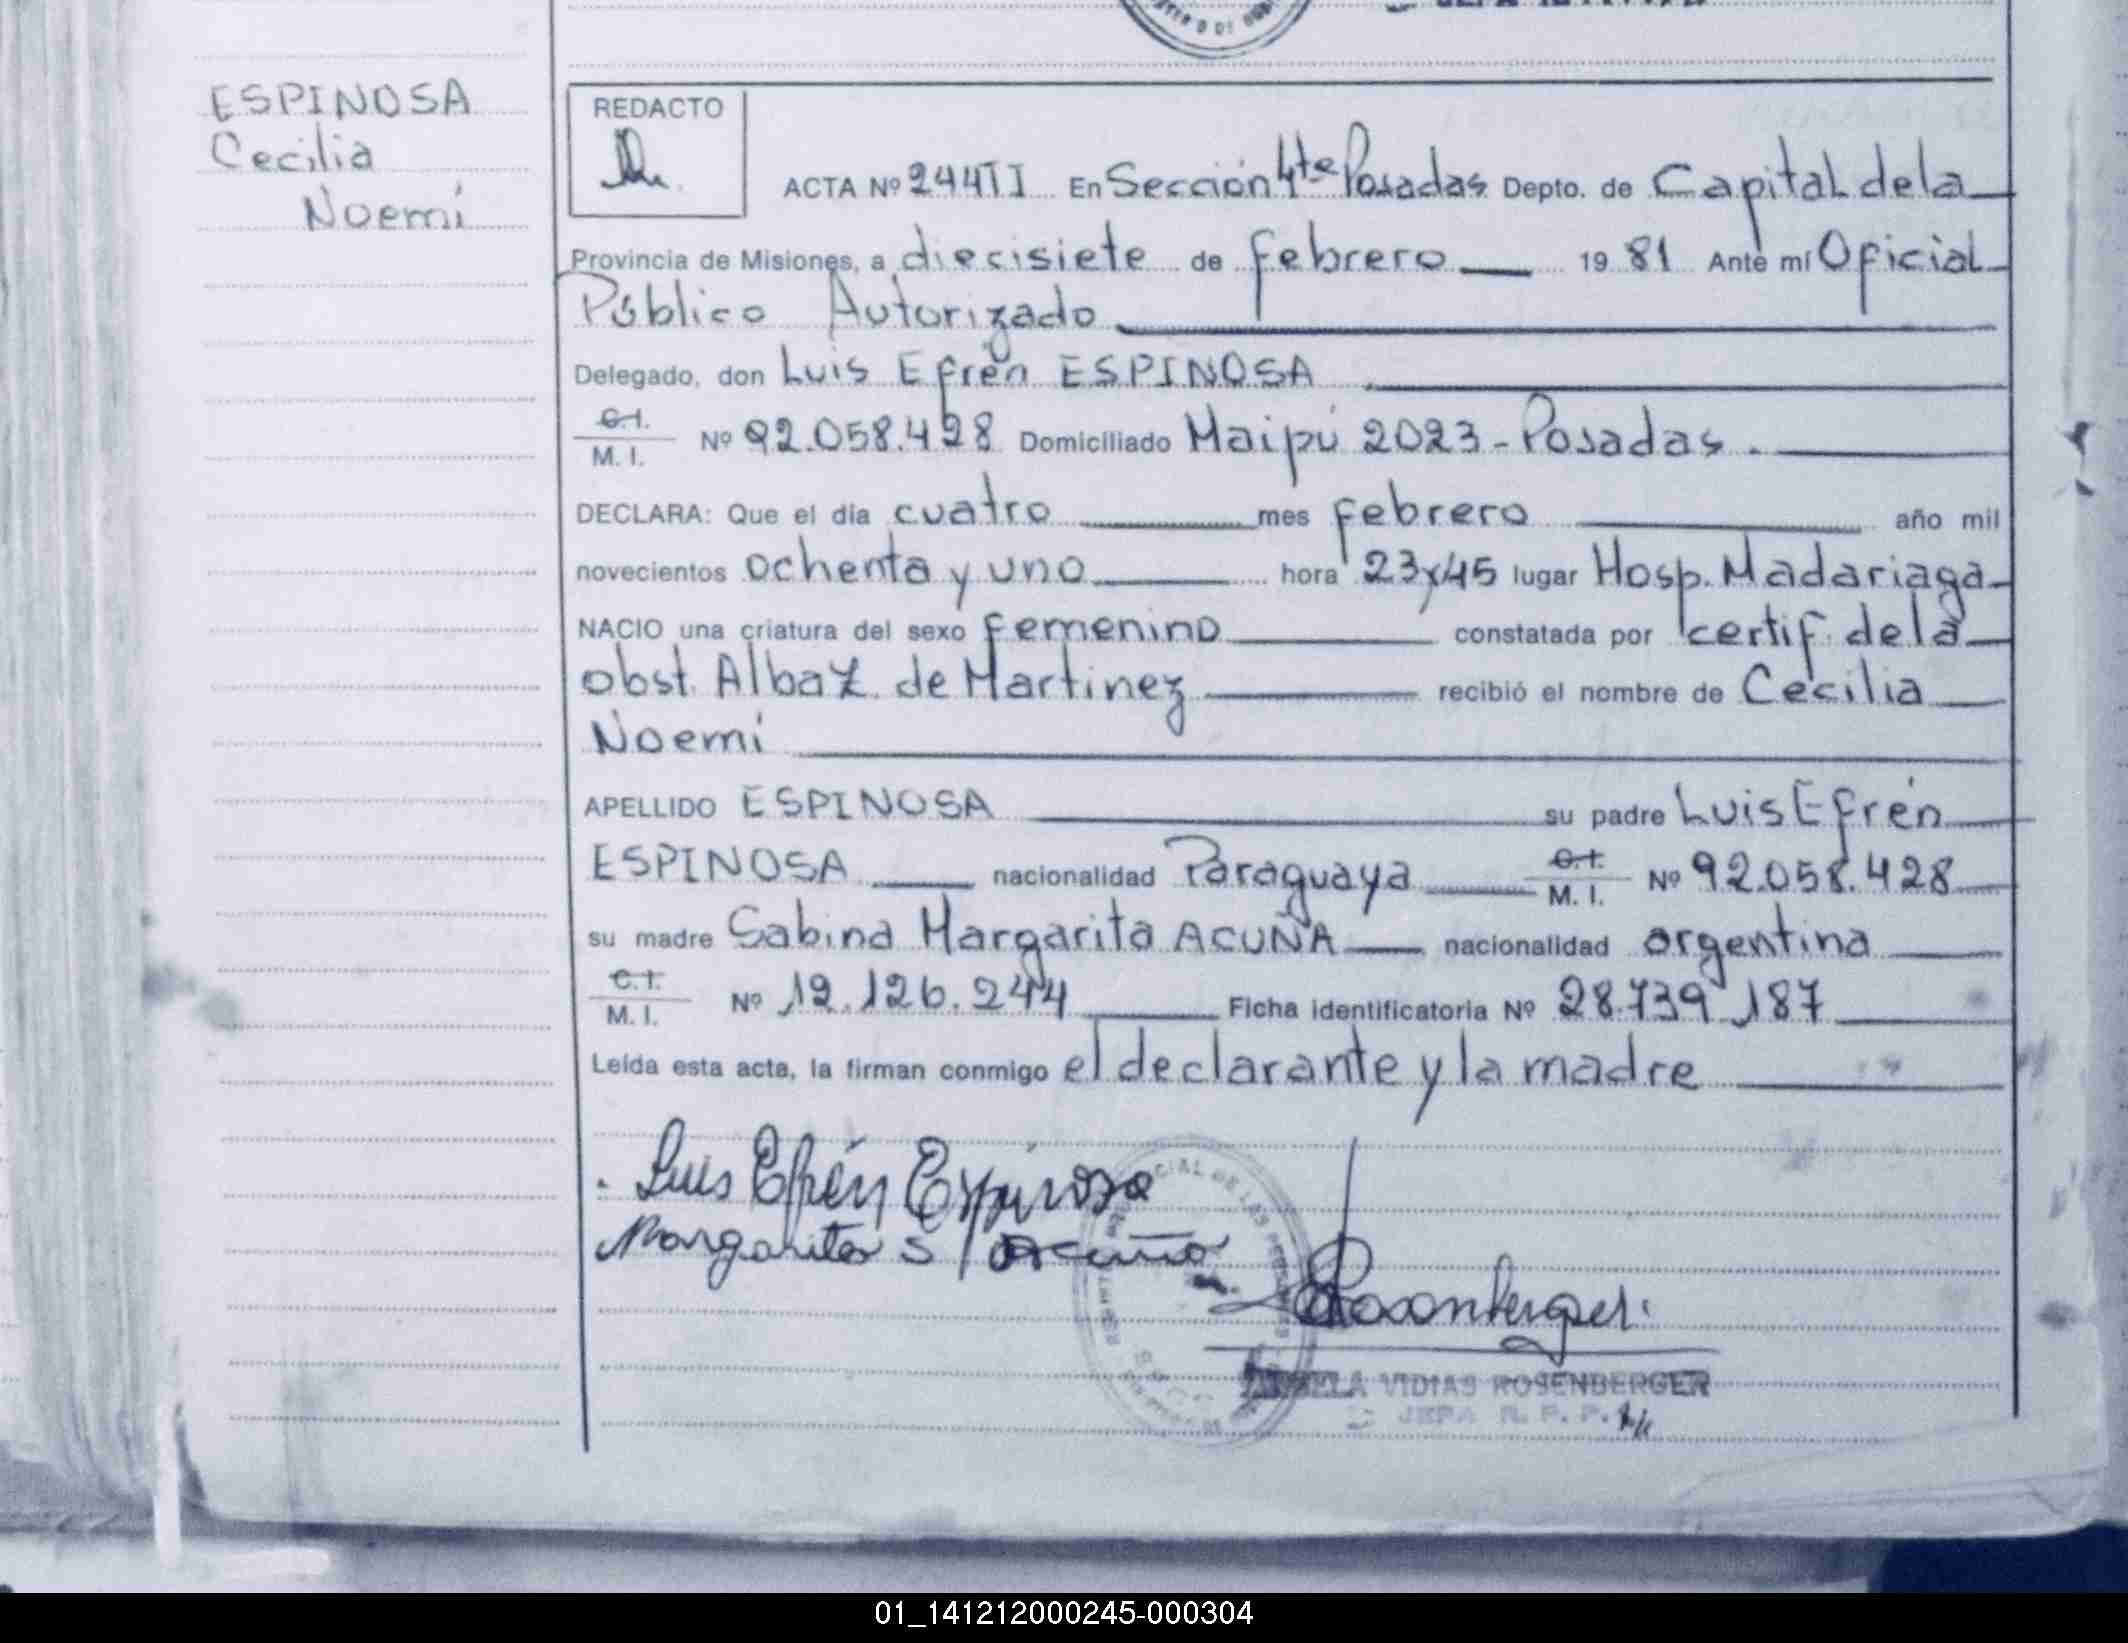 ESPINOSA
Cecilia
Noemí
REDACTO
ACTA Nº 244TI En Sección 4ta Posadas Depto. de Capital de la
Provincia de Misiones, a diecisiete de febrero 19 81 Ante mí Oficial
Público Autorizado
Delegado, don Luis Efrén ESPINOSA
C.I.
M. I. Nº 92.058.428 Domiciliado Maipú 2023 - Posadas.
DECLARA: Que el día cuatro mes febrero año mil
novecientos ochenta y uno hora 23y45 lugar Hosp. Madariaga
NACIO una criatura del sexo femenino constatada por certif. de la
obst. Alba Z. de Martinez recibió el nombre de Cecilia
Noemí
APELLIDO ESPINOSA su padre Luis Efrén
ESPINOSA nacionalidad Paraguaya C.I. M. I. Nº 92.058.428
su madre Sabina Margarita ACUÑA nacionalidad argentina
C.I.
M. I. Nº 12.126.244 Ficha identificatoria Nº 28.739.187
Leída esta acta, la firman conmigo el declarante y la madre
Luis Efrén Espinosa
Margarita S Acuña
Rosenberger
VIDIAS ROSENBERGER
JEFA R. P. P.
01_141212000245-000304